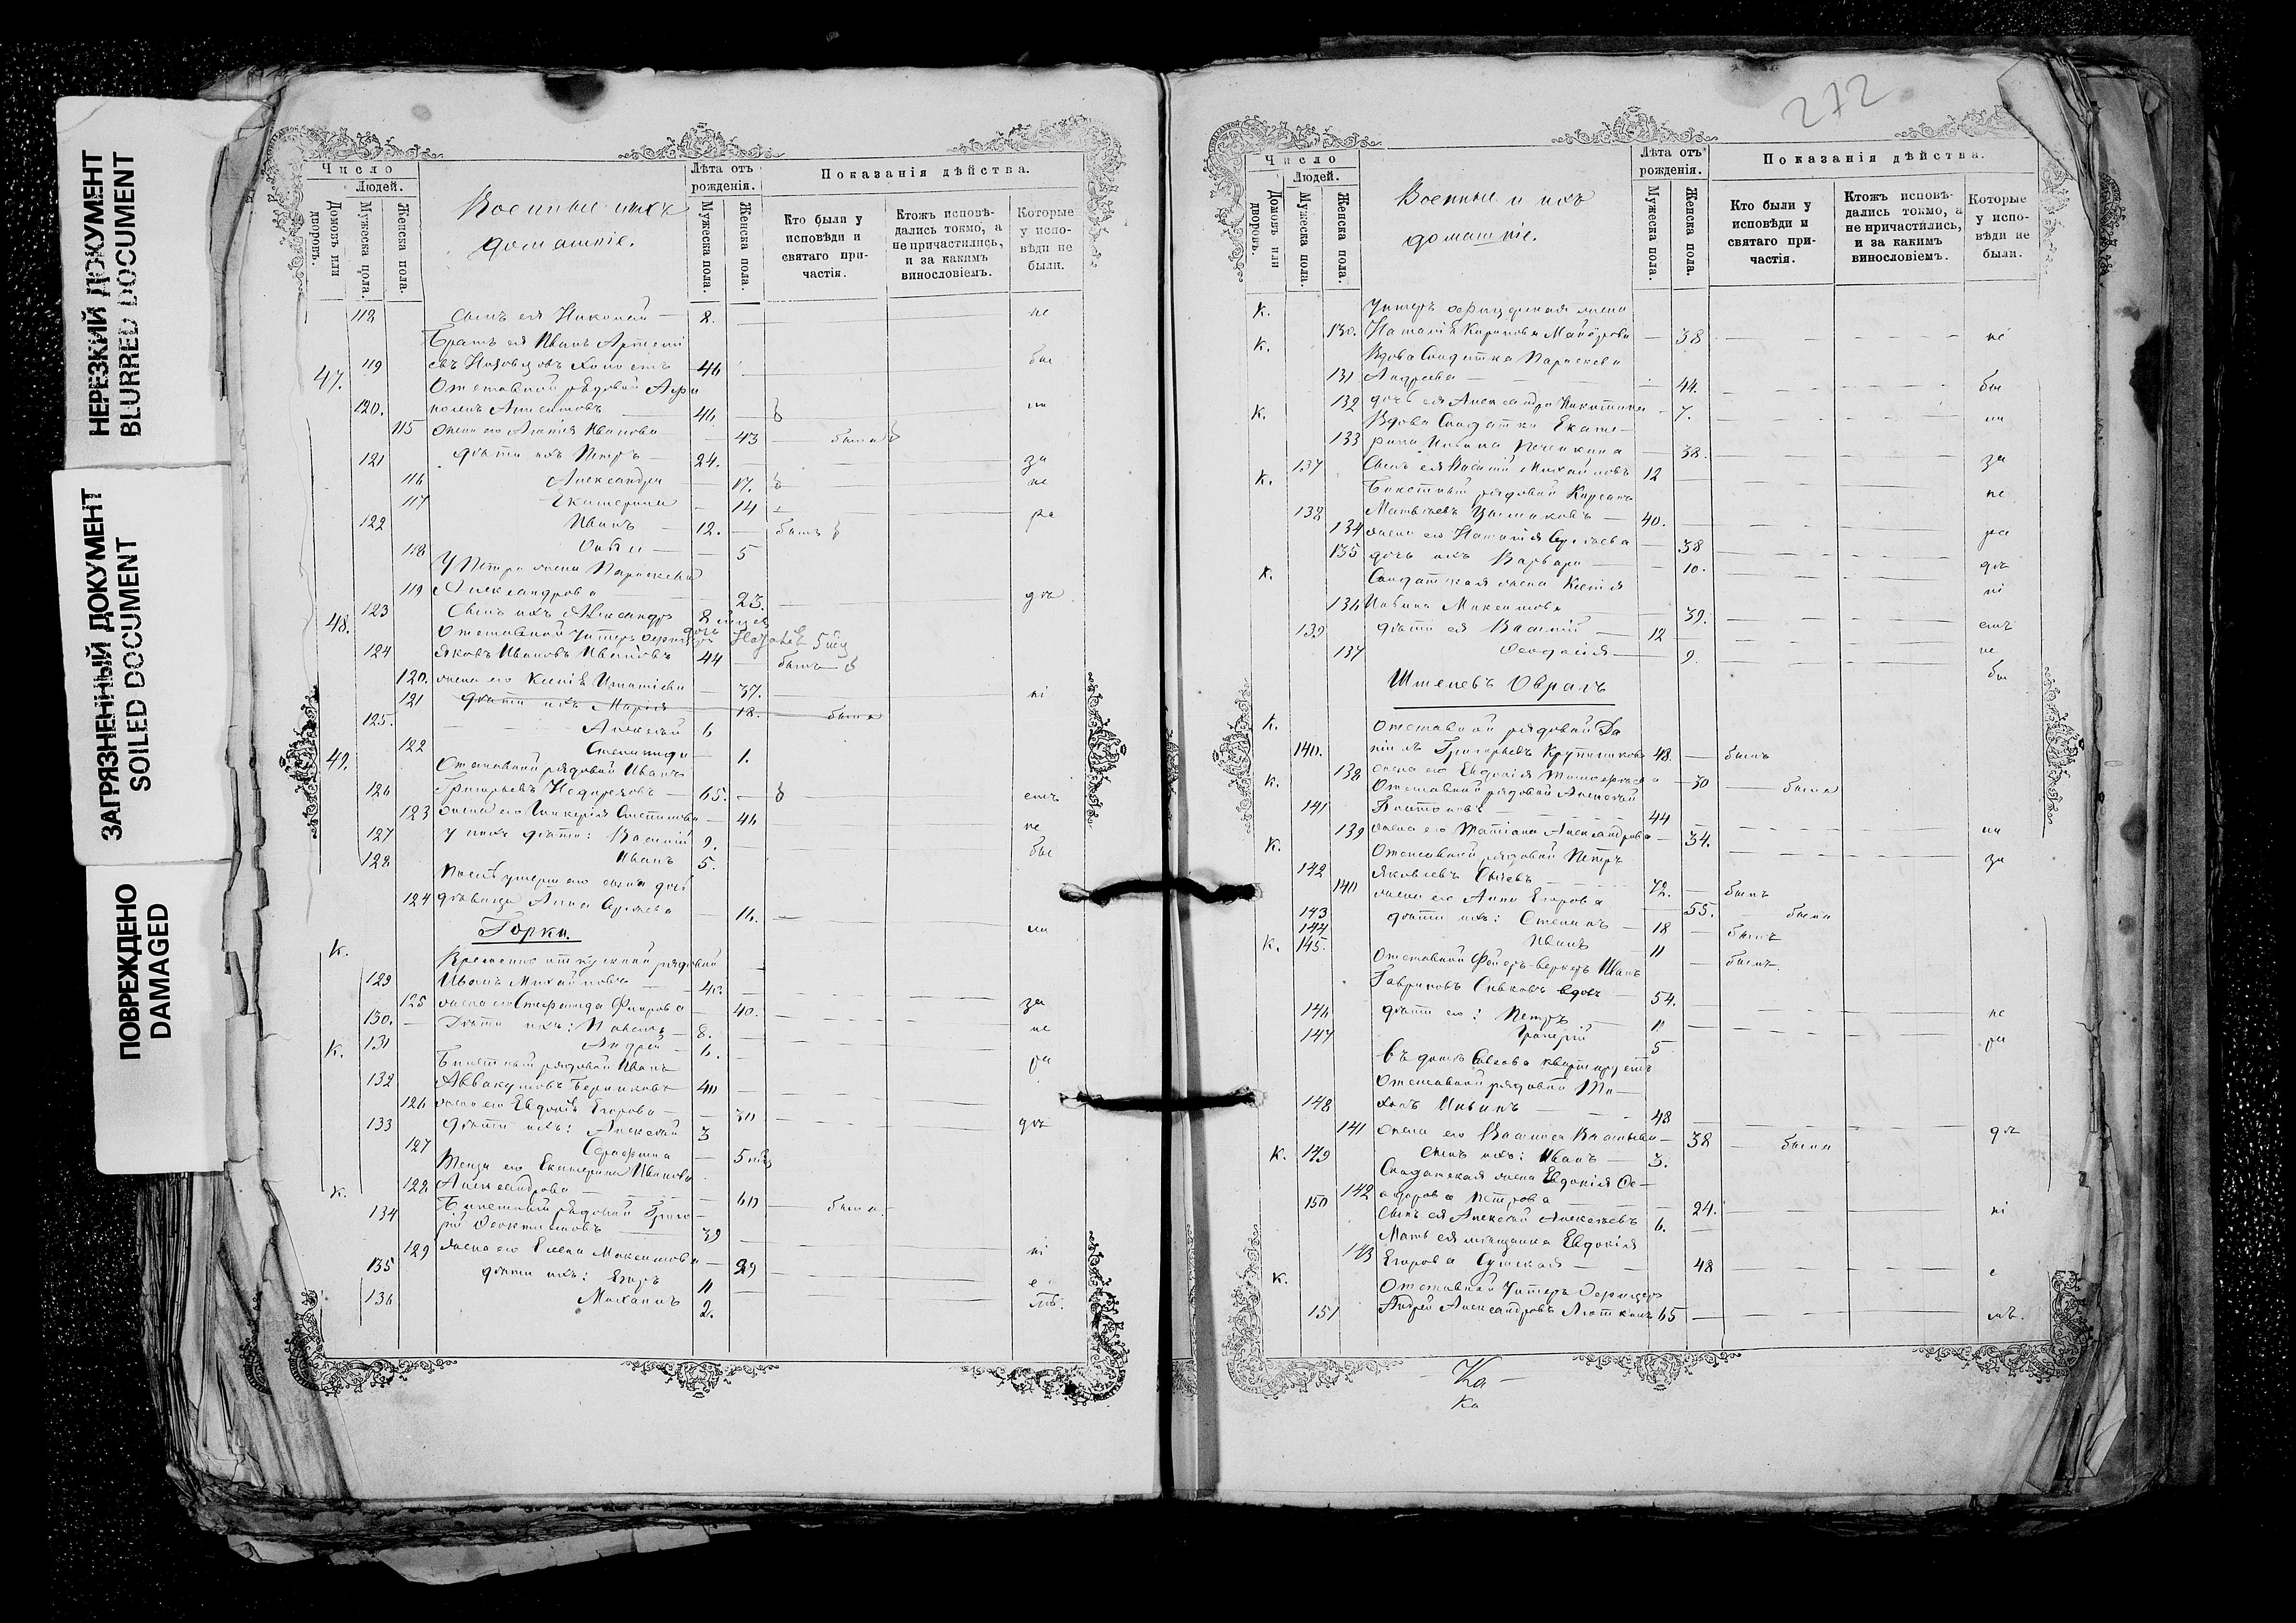 НЕРЕЗКИЙ ДОКУМЕНТ
BLURRED DOCUMENT
ЗАГРЯЗНЕННЫЙ ДОКУМЕНТ
SOILED DOCUMENT
ПОВРЕЖДЕНО
DAMAGED
Число
Людей.
Домовъ или дворовъ.
Мужеска пола.
Женска пола.
Военные и ихъ
домашніе.
Лѣта отъ рожденія.
Мужеска пола.
Женска пола.
Показанія дѣйства.
Кто были у исповѣди и святаго причастія.
Ктожъ исповѣдались токмо, а не причастились, и за какимъ винословіемъ.
Которые у исповѣди не были.
118 Сынъ ея Николай 8. не
Братъ ея Иванъ Артемі
119 46 бы
47. Отставной рядовой
120. 46 ли
115 жена его Иванова 43 была
121 дѣти ихъ Петръ 24. за
116 Александра 17. не
117 Екатерина 14
122 Иванъ 12. былъ ра
118 5
У Петра жена Параскева
119 Александрова 23. дѣ
123 Сынъ ихъ Александръ
48. Отставной Унтеръ офицеръ
124 Яковъ Ивановъ Ивановъ 44 былъ
120. жена его Ксенія Игнатіева 37. ні
121 дѣти ихъ Марія 12. была
125. Алексѣй 6
122 Степанида 1.
49. Отставной рядовой Иванъ
126 Григорьевъ 65. емъ
123 жена его Гликерія 46 не
127 у нихъ дѣти: Василій 9. бы
128 Иванъ 5.
124 дѣвица Анна Сергѣева 16. ли
Горки.
К. Временно отпускной рядовой
129 Иванъ Михайловъ 40.
125 жена его Стефанида 40. за
130. Дѣти ихъ: 8. не
131 Андрей 6.
К. Билетный рядовой Иванъ ра
132 Аввакумовъ 40
126 жена его Евдокія Егорова 30
133 дѣти ихъ: Алексѣй 3 дѣ
127 Серафима 5
Теща его Екатерина Иванова
128 Александрова 60 была
К. Билетный рядовой Григо
134 рій 39
129 жена его Елена Максимова 29 ні
135 дѣти ихъ: Егоръ 11 е
136 Михаилъ 2. мъ.
272
Число
Людей.
Домовъ или дворовъ.
Мужеска пола.
Женска пола.
Военные и ихъ
домашніе.
Лѣта отъ рожденія.
Мужеска пола.
Женска пола.
Показанія дѣйства.
Кто были у исповѣди и святаго причастія.
Ктожъ исповѣдались токмо, а не причастились, и за какимъ винословіемъ.
Которые у исповѣди не были.
К. Унтеръ офицерская жена
130. Наталія 38 не
К. Вдова Солдатка Параскева
131 Андреева 44. бы
132 дочь ея Александра Никитина 7. ли
К. Вдова Солдатка Екате-
133 рина 38.
137 Сынъ ея Василій Михайловъ 12 за
К. Билетный рядовой не
138 Матвѣевъ 40.
134 жена его Наталія Сергѣева 38 ра
135 дочь ихъ Варвара 10. дѣ
К. Солдатская жена Ксенія
136 Максимова 39. ні
139 дѣти ея Василій 12 емъ
137 Ѳеодосія 9. не
Штелевъ Оврагъ бы
К. Отставной рядовой Да
140. ніилъ Григорьевъ 48. былъ
138 жена его Евдокія Тимофеева 30 была
К. Отставной рядовой Алексѣй
141 44
139 жена его Татіана Александрова 34. ли
К. Отставной рядовой Петръ за
142 Яковлевъ 72. былъ
140 жена его Анна Егорова 55. была
143 дѣти ихъ: 18 былъ
144 Иванъ 11 былъ.
К. 145. Отставной Фейеръ-веркеръ Иванъ
Гавриловъ вдовъ 54.
146 дѣти его: Петръ 11 не
147 5 ра
въ домѣ квартируетъ
Отставной рядовой Ти-
148 хонъ 48
141 жена его Василиса 38 была дѣ
К. 149 Сынъ ихъ: Иванъ 3.
Солдатская жена Евдокія Ѳе-
142 одорова Петрова 24. ні
150 Сынъ ея Алексѣй Алексѣевъ 6.
Мать ея мѣщанка Евдокія
143 Егорова 48 е
К. Отставной Унтеръ Офицеръ
151 Андрей Александровъ 65 мъ.
Ка
Ка